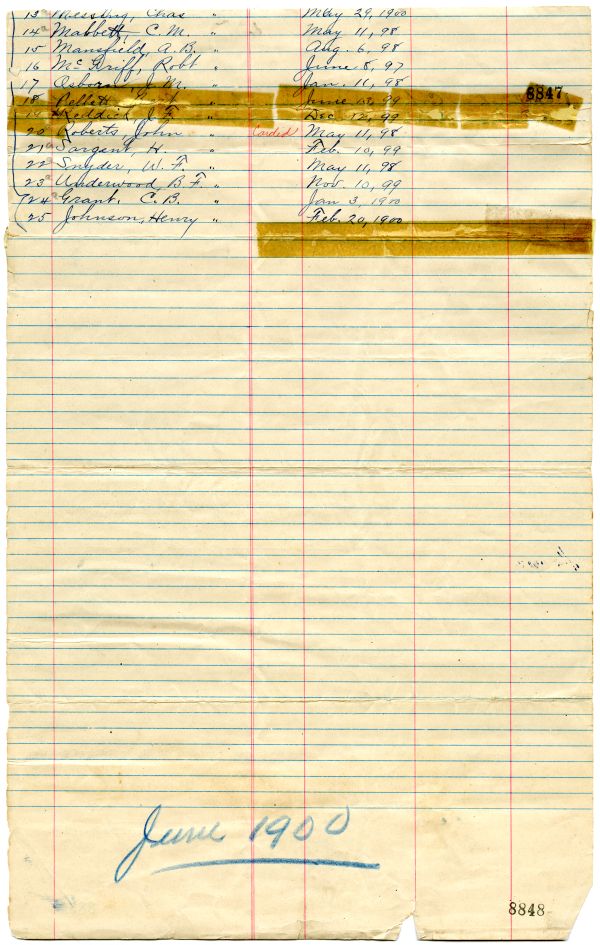 13a Messbrig, Chas " May 29, 1900
14a Mabbett, C. M. " May 11, 98
15 Mansfield, A. B. " Aug. 6, 98
16 McGriff, Robt " June 8, 97
17 Osborn, J. M. " Jan. 11, 98
18 Pellett " June 13, 99 8847
19 Reddick, J. F. " Dec. 12, 99
20 Roberts, John " Carded May 11, 98
21a Sargent, H. " Feb. 10, 99
22 Snyder, W. F. " May 11, 98
23a Underwood, B. F. " Nov. 10, 99
24a Grant, C. B. " Jan 3, 1900
25 Johnson, Henry " Feb. 20, 1900
June 1900
8848